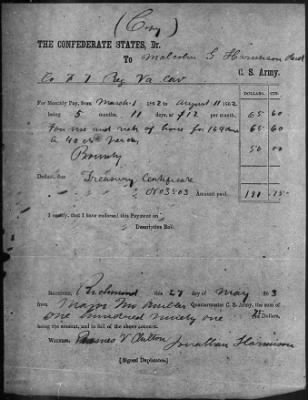 (Copy)
THE CONFEDERATE STATES, Dr.
To Malcolm G Harrison
Co F 7 Reg Va Cav C. S. Army.
DOLLARS. CTS.
For Monthly Pay, from March 1 1862 to August 11 1862
being 5 months 11 days, at $12 per month, 65 60
For use and risk of horse for 164 days 65 60
@ 40 cts
Bounty 50 00
Deduct, due Treasury Certificate
No 3503 Amount paid,
I certify, that I have endorsed this Payment on
Descriptive Roll.
RECEIVED, Richmond this 27 day of May 1863
from Major Quartermaster C. S. Army, the sum of
One hundred ninety one Dollars,
being the amount, and in full of the above account.
WITNESS, James V
Jonathan Harrison
[Signed Duplicates.]